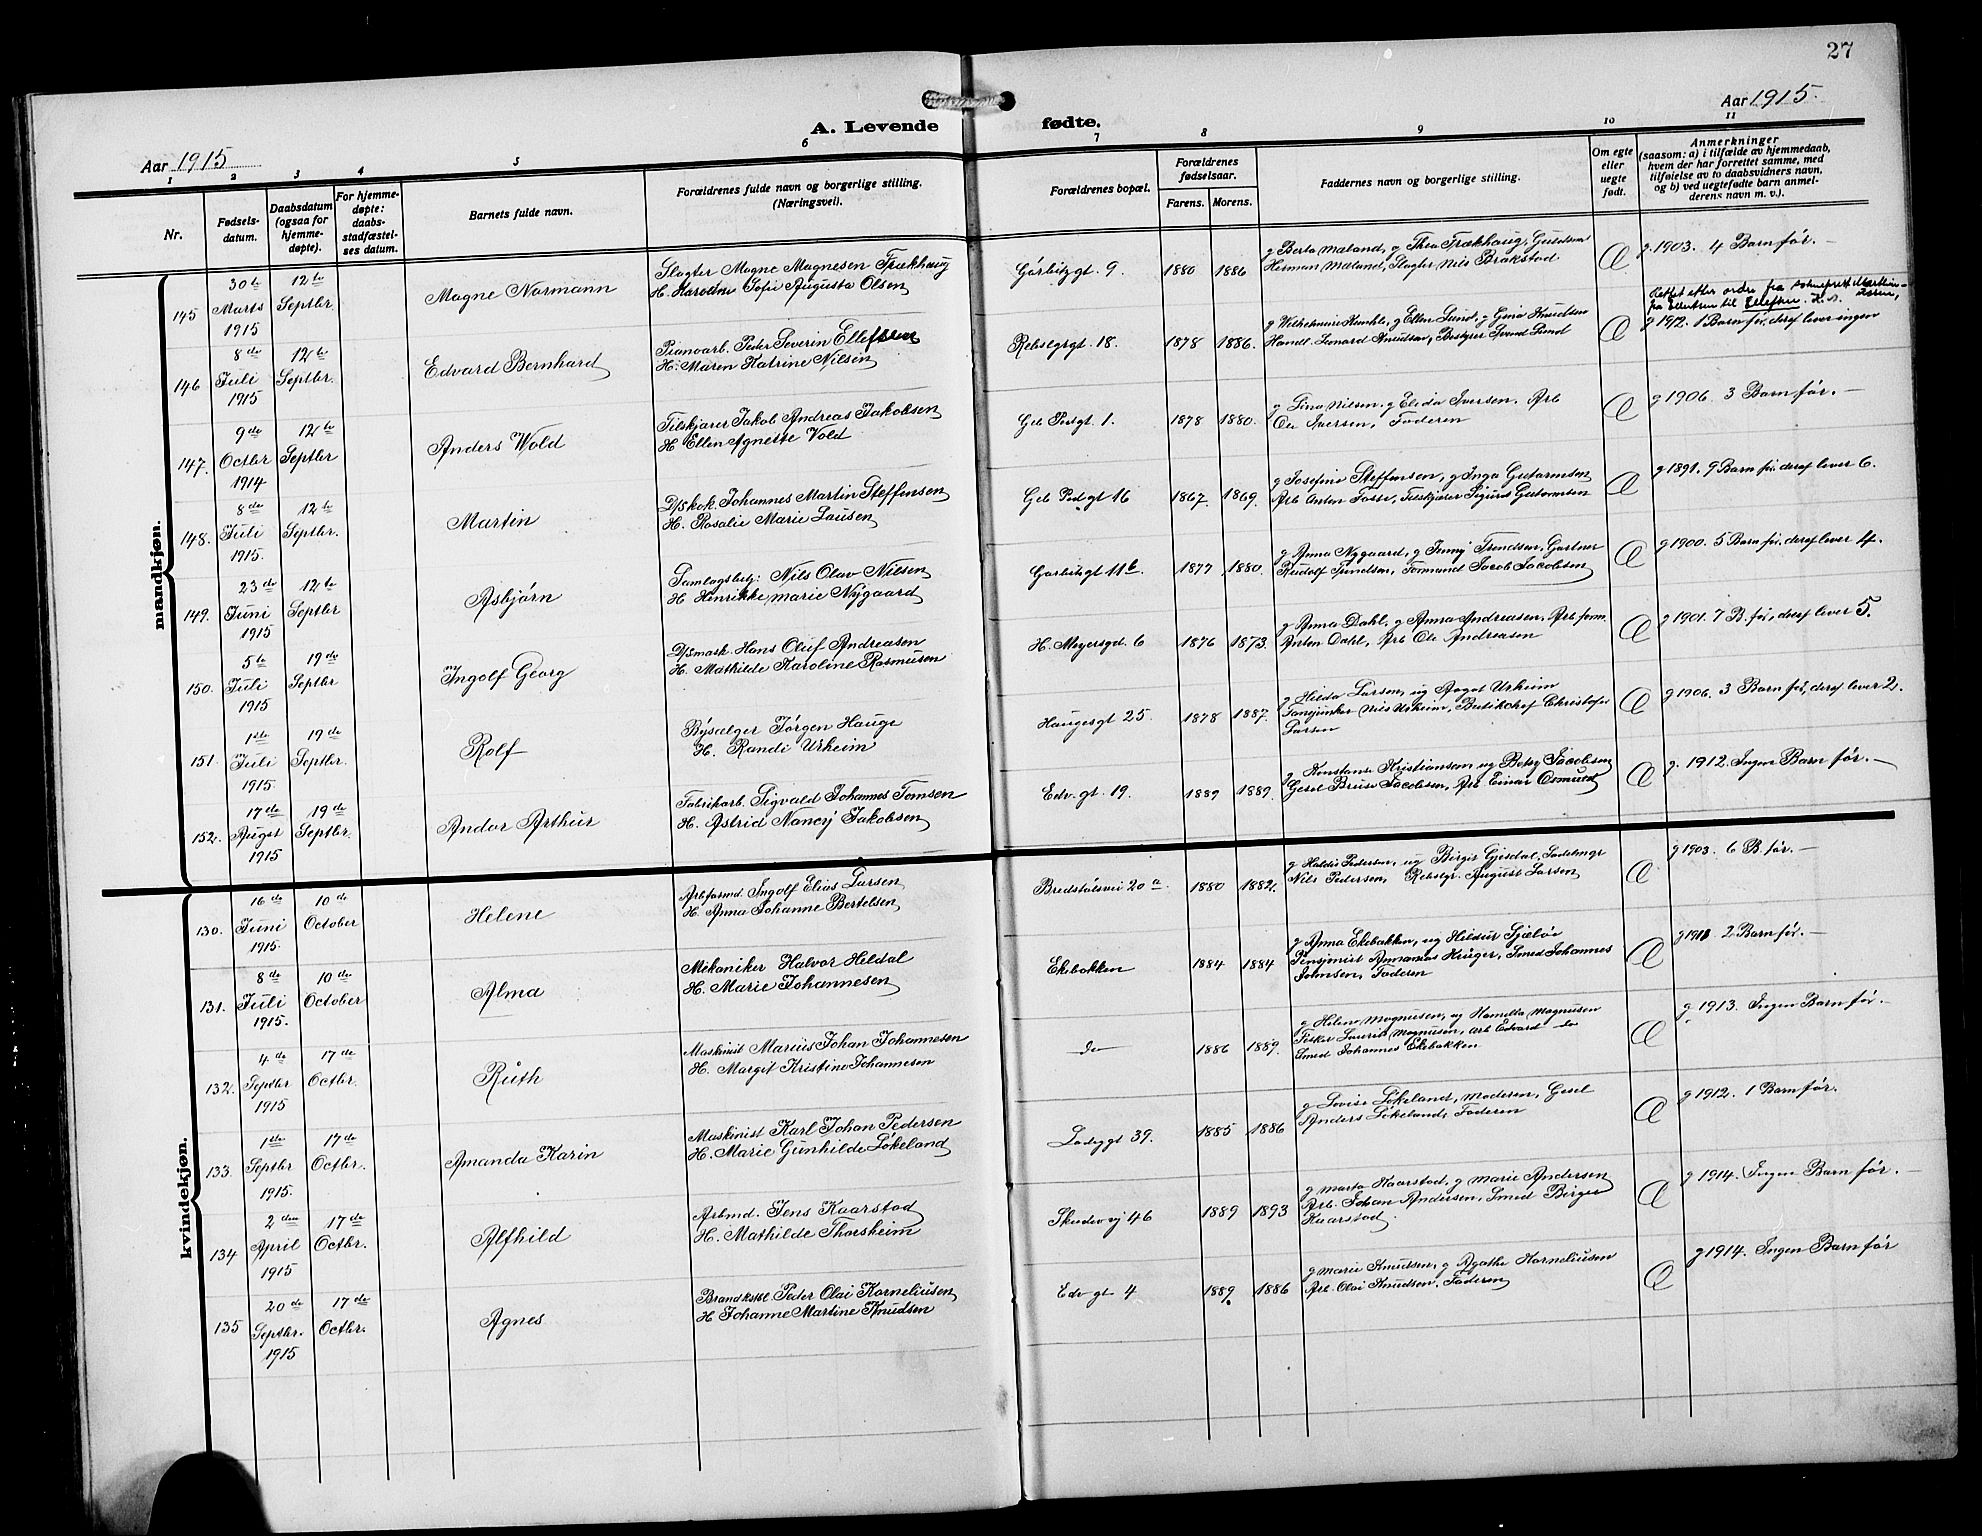 27
A. Levende fødte.
Aar 1915
Aar 1915.
1 2 3 4 5 6 7 8 9 10 11
Nr.
Fødsels-
datum.
Daabsdatum
(ogsaa for
hjemme-
døpte).
For hjemme-
døpte:
daabs-
stadfæstel-
ses datum.
Barnets fulde navn.
Forældrenes fulde navn og borgerlige stilling.
(Næringsvei).
Forældrenes bopæl.
Forældrenes
fødselsaar.
Farens. Morens.
Faddernes navn og borgerlige stilling.
Om egte
eller
uegte
født.
Anmerkninger
(saasom: a) i tilfælde av hjemmedaab,
hvem der har forrettet samme, med
tilføielse av to daabsvidners navn,
og b) ved uegtefødte barn anmel-
derens navn m. v.).
mandkjøn.
145 30te Marts 1915 12te Septbr. Magne Normann
Slagter Magne Magnesen Trækhaug
H. Karoline Sofie Augusta Olsen
Gørbitzgt. 9. 1880 1886
g Berta Mæland, g Thea Trækhaug, Guldsm
Herman Mæland, Slagter Nils Brakstad
Æ g. 1903. 4 Barn før. —
146 8de Juli 1915 12te Septbr. Edvard Bernhard
Pianoarb. Peder Severin Ellefsen
H. Maren Katrine Nilsen
Rebslgrgt. 18. 1878 1886.
g Wilhelmine Humble, g Ellen Lund, g Gina Knudsen
Handl. Leonard Knudsen, Bestyrer Svend Lund
Æ Rettet efter ordre fra sokneprest
fra Ellertsen til Ellefsen.
g 1912. 1 Barn før, deraf lever ingen
147. 9de Octbr 1914 12te Septbr Anders Wold
Filskjærer Jakob Andreas Jakobsen
H Ellen Agnette Vold
Geb Pedgt. 1. 1878 1880.
g Lina Nilsen, g Elida Iversen. Arb
Ole Iversen, Faderen
Æ g 1906. 3 Barn før. —
148. 8de Juli 1915. 12te Septbr. Martin
D/Skok. Johannes Martin Steffensen
H. Rosalie Marie Lausen
Geb Pedgt 16 1867. 1869.
g Josefine Steffensen, g Inga Guttormsen
Arb Anton Fosse, Filskjærer Sigurd Guttormsen
Æ g 1891. 9 Barn før. deraf lever 6.
149. 23de Juni 1915 12te Septbr Asbjørn
Samlagsbetj. Nils Olav Nilsen
H Henrikke Marie Nygaard
Gørbitzgt 11b. 1877 1880.
g Anna Nygaard, g Jenny Trondsen, Gartner
Rudolf Tundsen, Formand Jacob Jacobsen
Æ g 1900. 5 Barn før. deraf lever 4.
150. 5te Juli 1915 19de Septbr Ingolf Georg
D/Smask. Hans Oluf Andreasen
H. Mathilde Karoline Rasmusen
H. Meyersgd. 6 1876 1873.
g Anna Dahl, g Anna Andreasen, Arb form.
Anton Dahl, Arb Ole Andreasen
Æ g 1901. 7 B. før, deraf lever 5.
151. 1ste Juli 1915. 19de Septbr. Rolf
Bysælger Jørgen Hauge
H. Randi Urheim
Haugesgt 25. 1878 1887.
g Hilda Larsen, ug Aagot Urheim
Nils Urheim, Butikchef Christofer
Larsen
Æ g 1906. 3 Barn før, deraf lever 2.
152. 17de August 1915 19de Septbr. Andor Arthur
Fabrikarb. Sigvald Johannes Tomsen
H. Astrid Nancy Jakobsen
Edv. gt. 19. 1889 1889.
g Konstanse Kristiansen ug Betsy Jacobsen
Gesel Bruse Jacobsen, Arb. Einar Osmund
Æ g. 1912. Ingen Barn før. —
kvindekjøn.
130. 16de Juni 1915. 10de October Helene
Arbformd. Ingolf Elias Larsen
H. Anna Johanne Bertelsen
Bredstølsvei 20a. 1880 1882.
g Haldis Pedersen, ug Birgit Gjesdal, Sadelmgr
Nils Pedersen, Rebslgr. August Larsen
Æ g 1903. 6 B. før. —
131. 8de Juli 1915. 10de October Alma
Mekaniker Halvor Heldal
H. Marie Johannesen
Ekebakken 1884 1884
g Anna Ekebakken, ug Hildur Sjæløe
Pensjonist Ananias Krüger, Smed Johannes
Johnsen, Faderen
Æ g 1911 2 Barn før. —
132. 4de Septbr 1915 17de Octbr. Ruth
Maskinist Marius Johan Johannesen
H. Margit Kristine Johannesen
do 1886 1889.
g Helene Magnusen, ug Hamella Magnusen
Fisker Laurits Magnusen, arb Edvard do
Smed Johannes Ekebakken
Æ g 1913. Ingen Barn før. —
133. 1ste Septbr 1915. 17de Octbr. Amanda Karin
Maskinist Karl Johan Pedersen
H. Marie Gunhilde Løkeland
Ladeggt 39. 1885 1886
g Lovise Løkeland, Moderen, Gesel
Anders Løkeland, Faderen
Æ g 1912. 1 Barn før.
134 2den April 1915 17de Octbr. Alfhild
Arbmd. Jens Kaarstad
H. Mathilde Thorsheim
Skudevvj 46 1889 1893
g Marta Kaarstad, g Marie Andersen
Arb. Johan Andersen, Smed Birger
Kaarstad
Æ g 1914. Ingen Barn før. —
135 20de Septbr. 1915 17de Octbr. Agnes
Brandkstbl. Peder Olai Korneliusen
H Johanne Martine Knudsen
Edv gt 4 1889 1886
g Marie Knudsen, g Agathe Korneliusen
Arb. Olai Knudsen, Faderen
Æ g 1914. Ingen Barn før